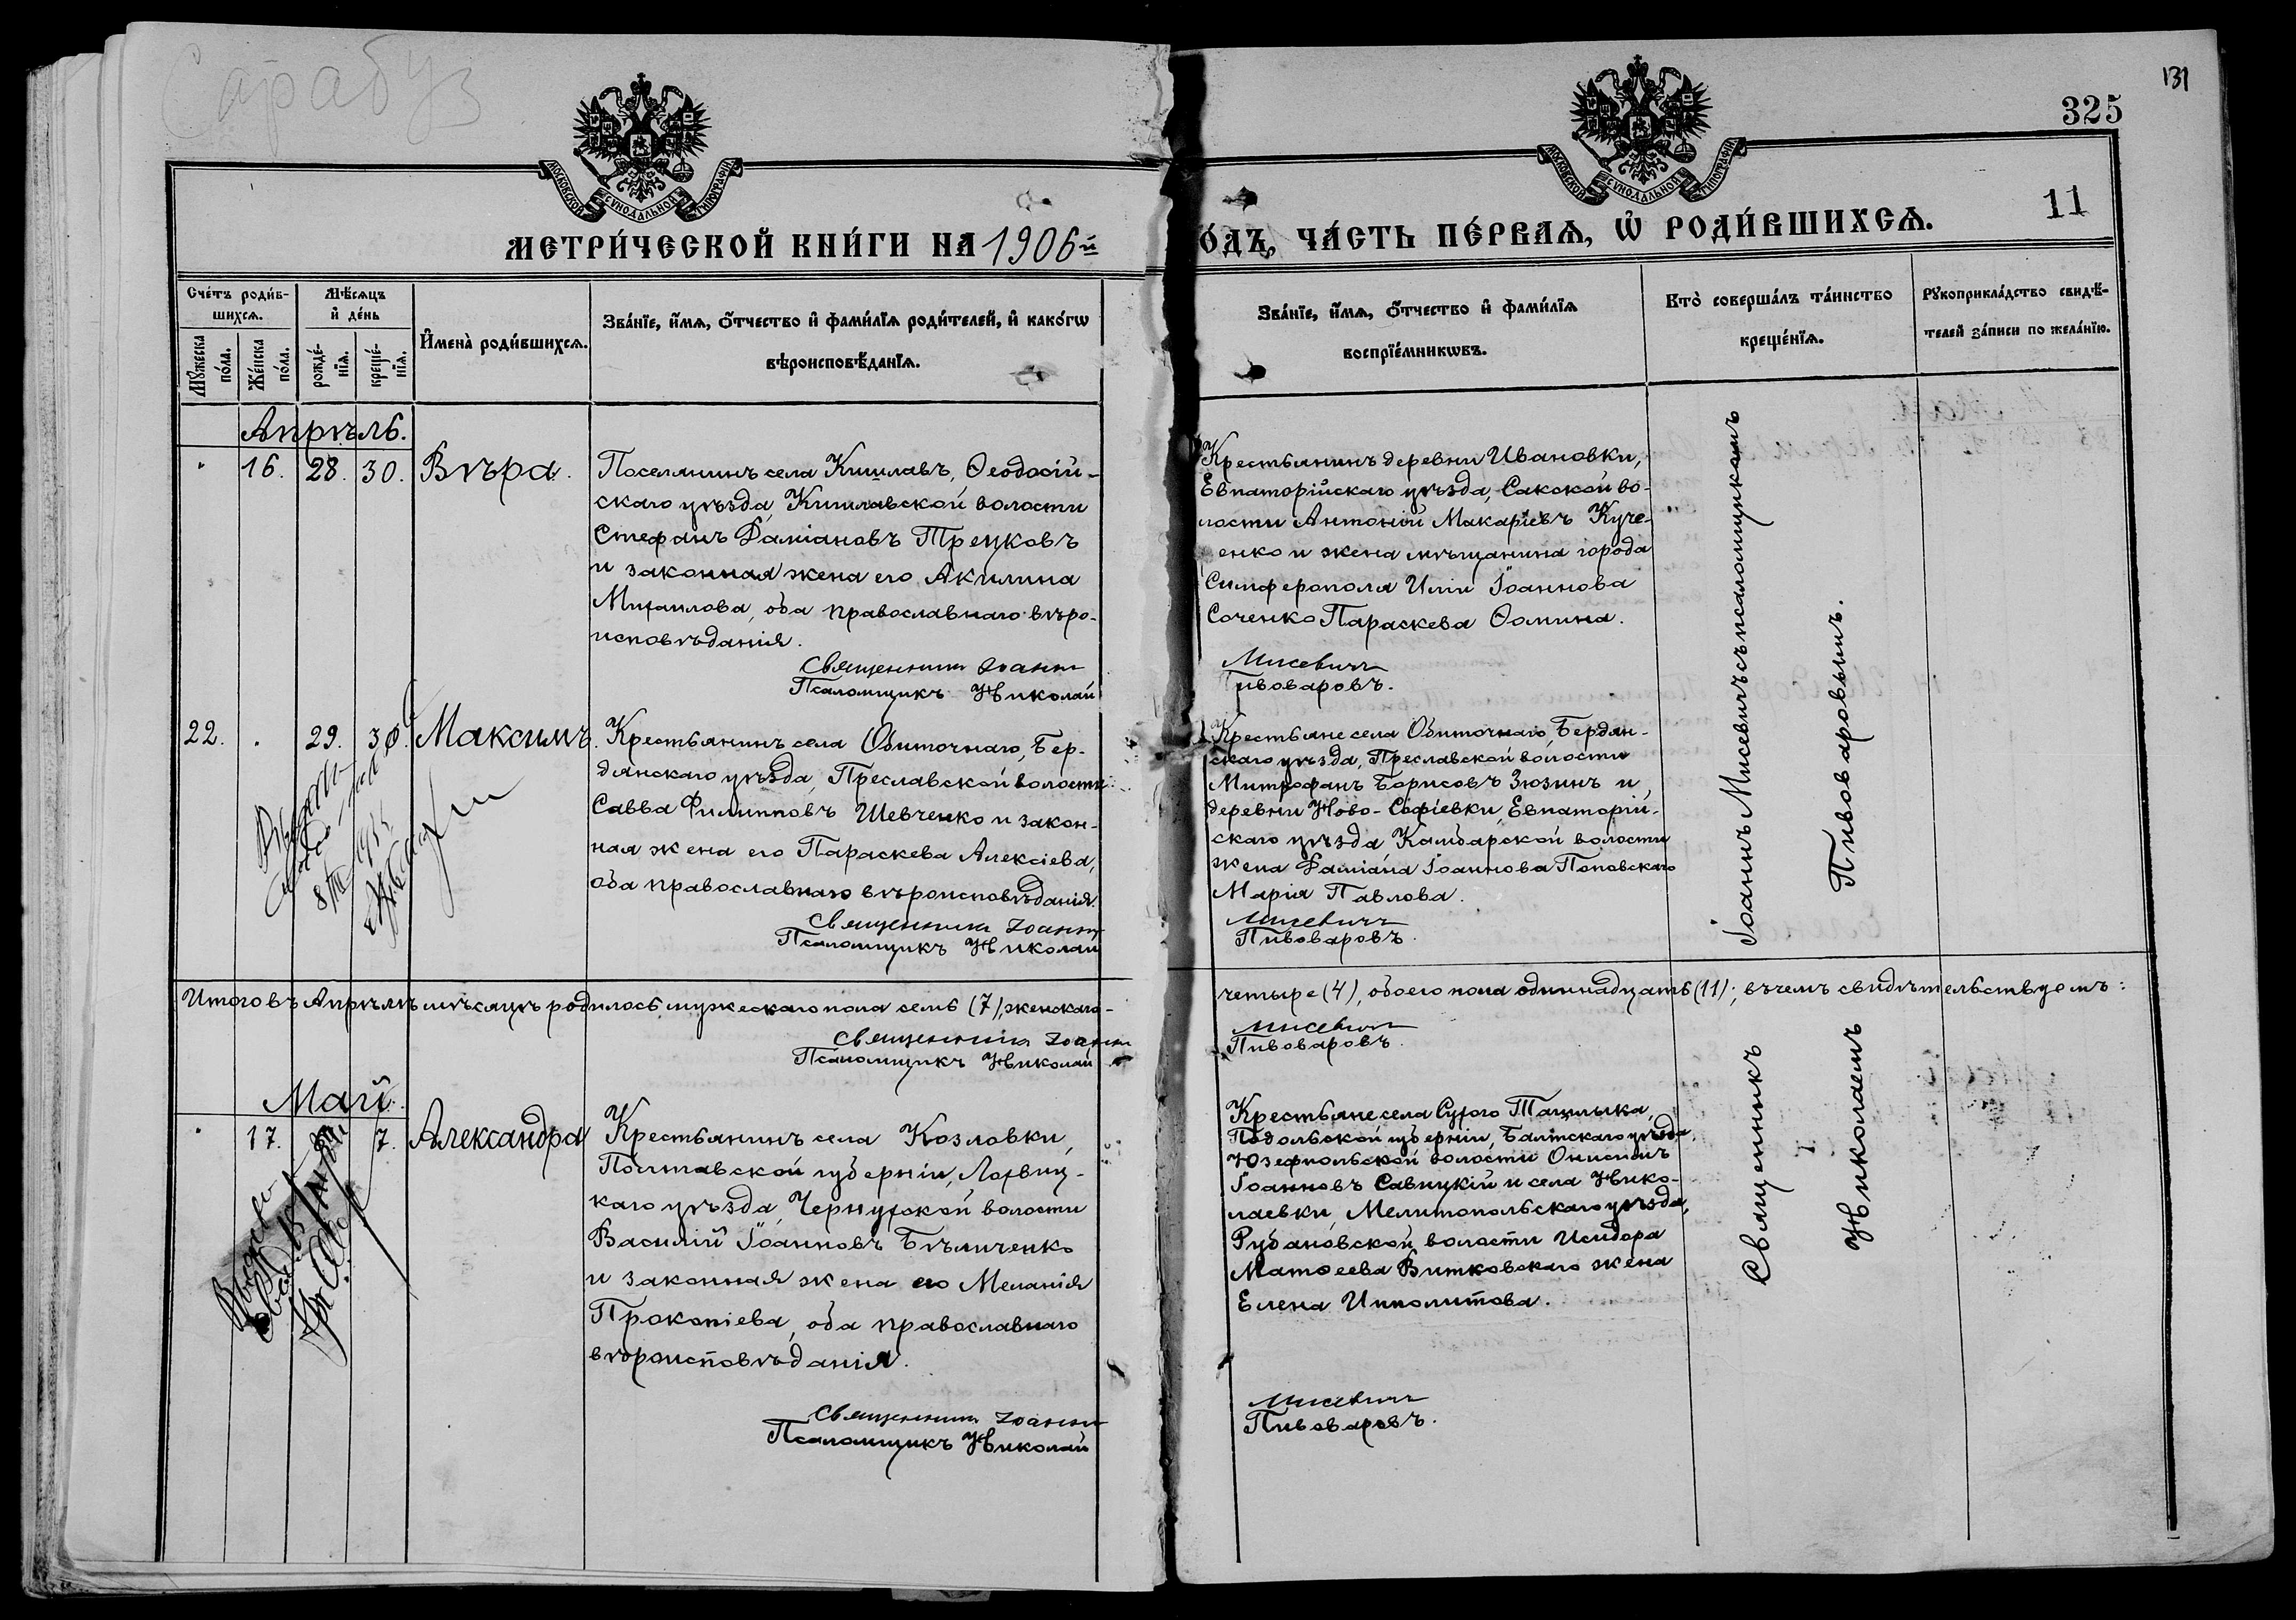 Сарабуз
131
325
11
МОСКОВСКОЙ СѴНОДАЛЬНОЙ ТИПОГРАФІИ
МОСКОВСКОЙ СѴНОДАЛЬНОЙ ТИПОГРАФІИ
МЕТРИ́ЧЕСКОЙ КНИ́ГИ НА 1906й
О́ДЪ, ЧА́СТЬ ПЕ́РВАѦ, Ѡ҆ РОДИ́ВШИХСѦ.
Сче́тъ роди́в-
шихсѧ.
Мѣ́сѧцъ
и҆ де́нь
Мꙋ́жеска
по́ла.
Же́нска
по́ла.
рожде́-
нїѧ.
креще́-
нїѧ.
И҆мена̀ роди́вшихсѧ.
Зва́нїе, и҆́мѧ, ѻ҆́тчество и҆ фами́лїѧ роди́телей, и҆ како́гѡ
вѣроисповѣ́данїѧ.
Зва́нїе, и҆́мѧ, ѻ҆́тчество и҆ фами́лїѧ
воспрїе́мникѡвъ.
Кто̀ соверша́лъ та́инство
креще́нїѧ.
Рꙋкоприкла́дство свидѣ́-
телей за́писи по жела́нїю.
Апрѣль.
16. 28. 30. Вѣра.
Поселянинъ села Кишлавъ, Ѳеодосій-
скаго уѣзда, Кишлавской волости
Стефанъ Даміановъ Трецковъ
и законная жена его Акилина
Михаилова, оба православнаго вѣро-
исповѣданія.
Священникъ Іоаннъ
Псаломщикъ Николай
Крестьянинъ деревни Ивановки,
Евпаторійскаго уѣзда, Сакской во-
лости Антоній Макаріевъ Куче-
енко и жена мѣщанина города
Симферополя Иліи Іоаннова
Соченко Параскева Ѳомина.
Мисевичъ
Пивоваровъ.
22. 29. 30. Максимъ.
Крестьянинъ села Обиточнаго, Бер-
дянскаго уѣзда, Преславской волости
Савва Филипповъ Шевченко и закон-
ная жена его Параскева Алексіева,
оба православнаго вѣроисповѣданія.
Священникъ Іоаннъ
Псаломщикъ Николай
Крестьяне села Обиточнаго, Бердян-
скаго уѣзда, Преславской волости
Митрофанъ Борисовъ Зюзинъ и
деревни Ново-Софіевки, Евпаторій-
скаго уѣзда Камбарской волости
жена Даміана Іоаннова Поповскаго
Марія Павлова.
Мисевичъ
Пивоваровъ.
Іоаннъ Мисевичъ съ псаломщикомъ
Пивоваровымъ.
Итого въ Апрѣлѣ мѣсяцѣ родилось мужескаго пола семь (7), женскаго-
четыре (4), обоего пола одиннадцать (11); въ чемъ свидѣтельствуемъ:
Священникъ Іоаннъ
Псаломщикъ Николай
Мисевичъ
Пивоваровъ.
Май.
17. 7. Александра
Крестьянинъ села Козловки,
Полтавской губерніи, Лохвиц-
каго уѣзда, Чернухской волости
Василій Іоанновъ Бѣличенко
и законная жена его Меланія
Прокопіева, оба православнаго
вѣроисповѣданія.
Священникъ Іоаннъ
Псаломщикъ Николай
Крестьяне села Сухого Ташлыка,
Подольской губерніи, Балтскаго уѣзда,
Юзефпольской волости Онисимъ
Іоанновъ Савицкій и села Нико-
лаевки, Мелитопольскаго уѣзда,
Рубановской волости Исидора
Матѳеева Витковскаго жена
Елена Ипполитова.
Мисевичъ
Пивоваровъ.
Священникъ
Николаемъ